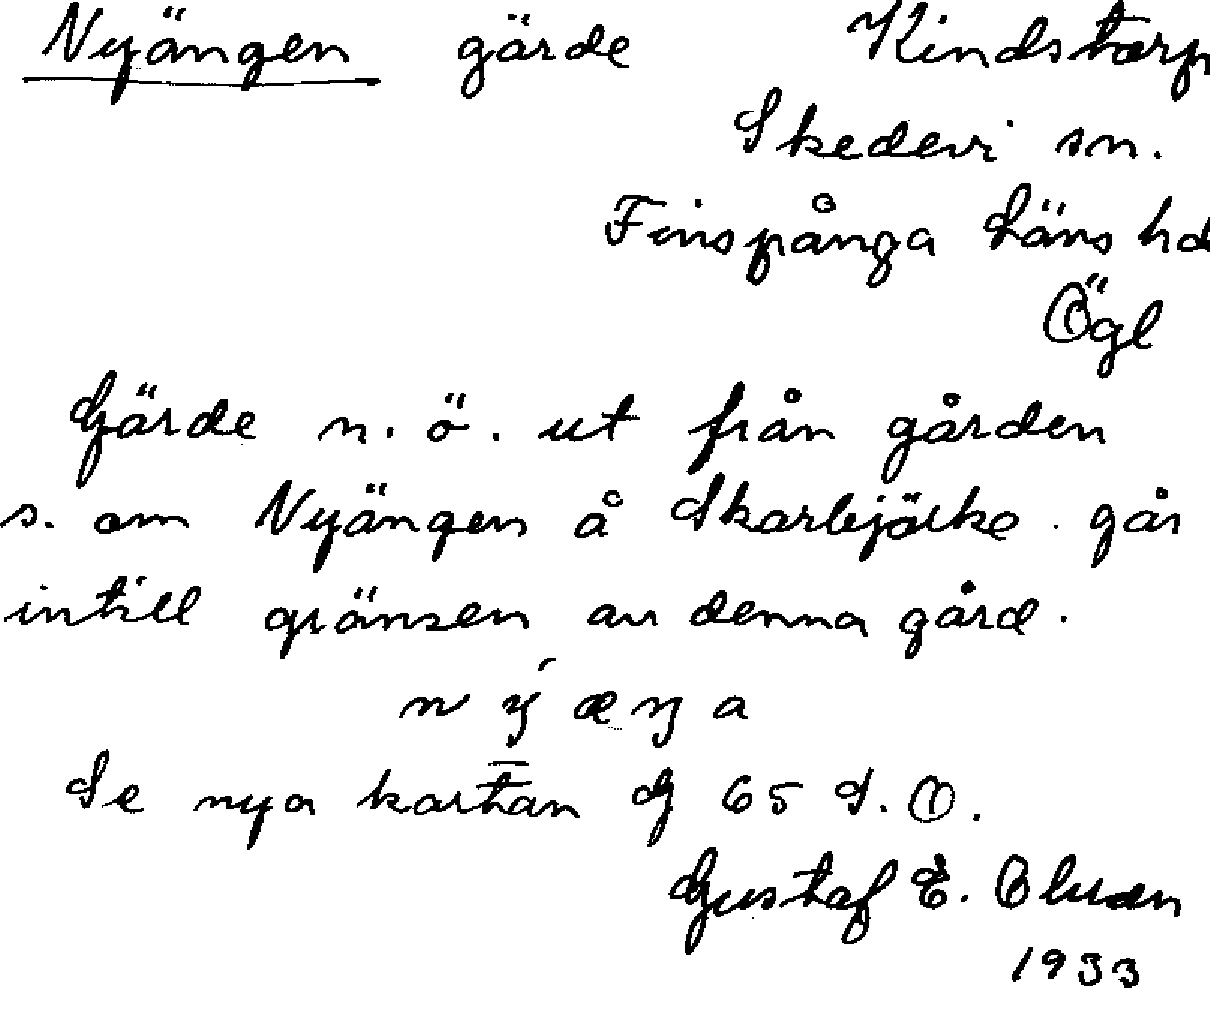 Nyängen gärde Kindstorp
Skedevi sn.
Finspånga läns hd
Ögl
Gärde n.ö. ut från gården
s. om Nyängen å går
intill gränsen av denna gård.
Se nya kartan G 65 S.O.
Gustaf E.
1933